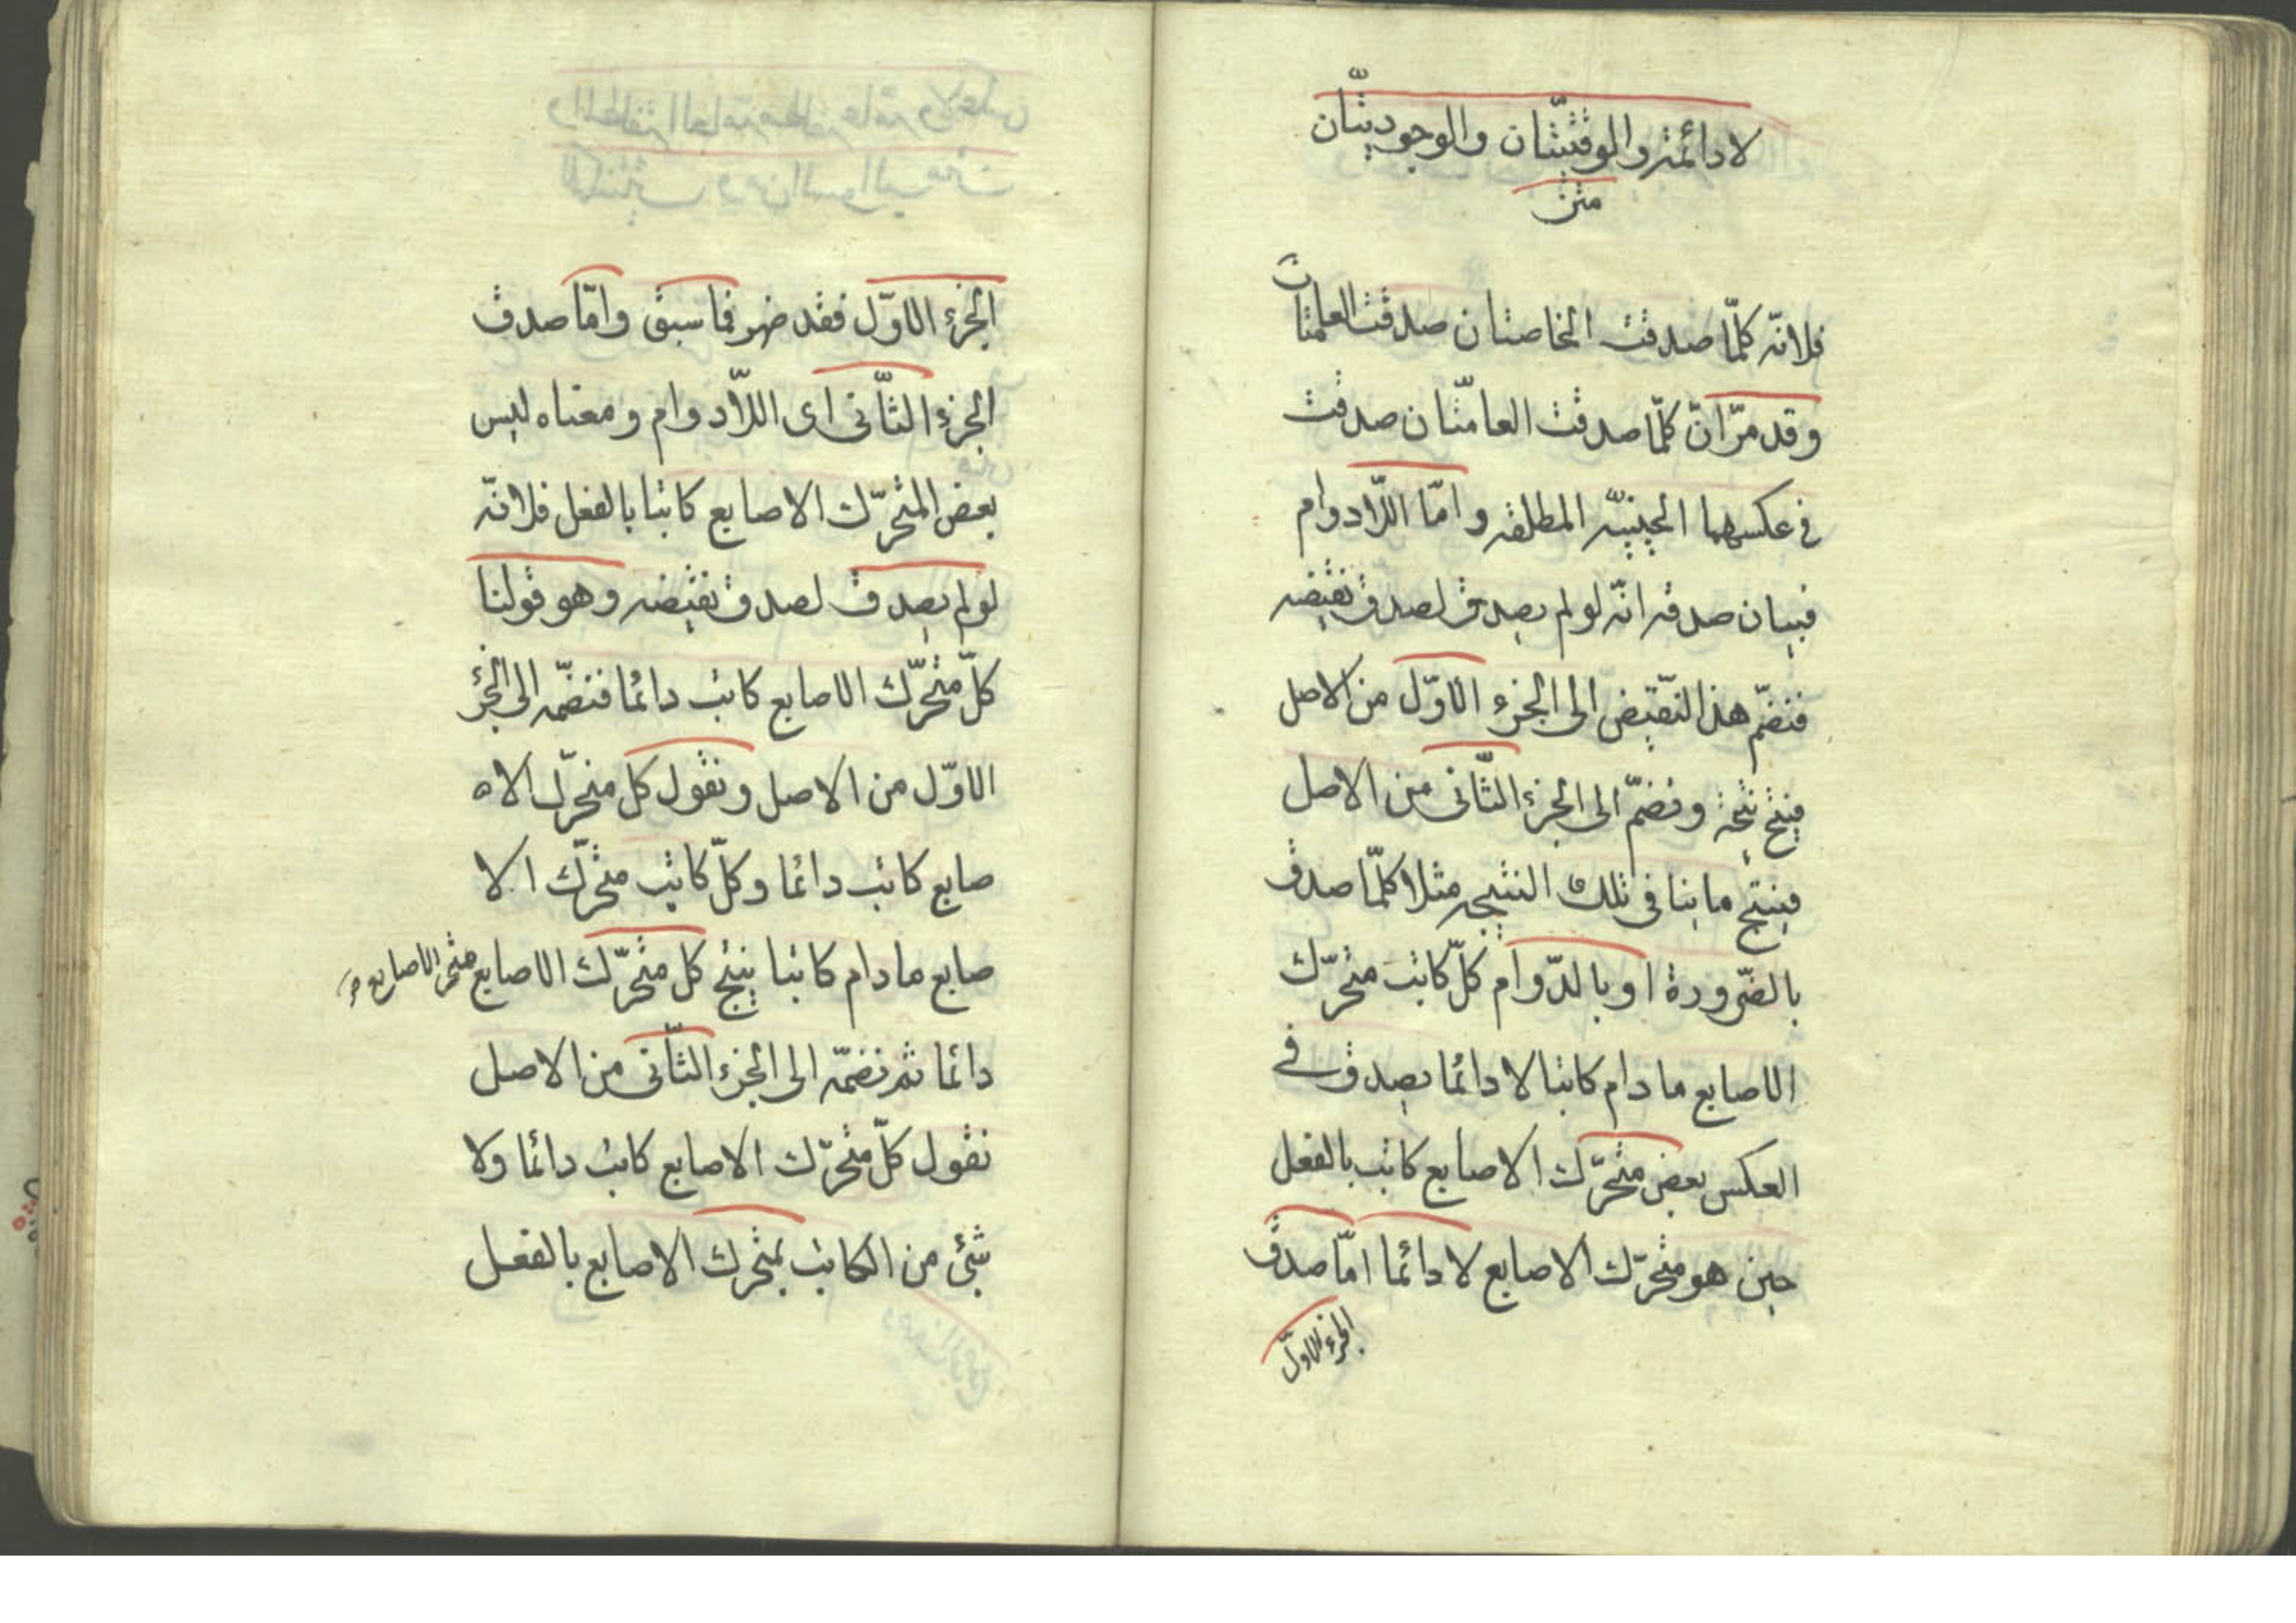 لادائمة والوقتيّتان والوجوديّتان
متن
فلانّه كلّما صدقت الخاصتان صدقت العامتان
وقد مرّ انّ كلّما صدقت العامّتان صدقت
فى عكسهما الحينيّه المطلقه وامّا اللّادوام
فبيان صدقه انّه لو لم يصدق لصدق نقيضه
فنضمّ هذا النّقيض الى الجزء الاوّل من الاصل
فينتج نتيجة ونضمّ الى الجزء الثّانى من الاصل
فينتج ما ينافى تلك النتيجه مثلا كلّما صدق
بالضّرورة او بالدّوام كلّ كاتب متحرّك
الاصابع ما دام كاتبا لا دائما يصدق فى
العكس بعض متحرّك الاصابع كاتب بالفعل
حين هو متحرّك الاصابع لا دائما امّا صدق
الجزء الاوّل
الجزء الاوّل فقد ضهر فما سبق وامّا صدق
الجزء الثّانى اى اللّادوام ومعناه ليس
بعض المتحرّك الاصابع كاتبا بالفعل فلانّه
لو لم يصدق لصدق نقيضه وهو قولنا
كلّ متحرّك الاصابع كاتب دائما فنضمّه الى الجزء
الاوّل من الاصل ونقول كل متحرّك الا
صابع كاتب دائما وكلّ كاتب متحرّك الا
صابع ما دام كاتبا ينتج كل متحرّك الاصابع متحر الاصابع
دائما ثم نضمّه الى الجزء الثّانى من الاصل
نقول كلّ متحرّك الاصابع كاتب دائما ولا
شئ من الكاتب بمتحرك الاصابع بالفعل